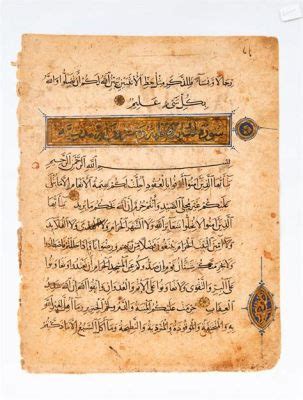 رجالا ونساء فللذكر مثل حظ الانثيين يبين الله لكم ان تضلوا والله
بكل شيء عليم
سورة المائدة
بسم الله الرحمن الرحيم
يا ايها الذين آمنوا اوفوا بالعقود احلت لكم بهيمة الانعام الا ما يتلى
عليكم غير محلي الصيد وانتم حرم ان الله يحكم ما يريد يا ايها
الذين آمنوا لا تحلوا شعائر الله ولا الشهر الحرام ولا الهدي ولا القلائد
ولا آمين البيت الحرام يبتغون فضلا من ربهم ورضوانا واذا حللتم فاصطادوا
ولا يجرمنكم شنآن قوم ان صدوكم عن المسجد الحرام ان تعتدوا وتعاونوا
على البر والتقوى ولا تعاونوا على الاثم والعدوان واتقوا الله ان الله شديد
العقاب حرمت عليكم الميتة والدم ولحم الخنزير وما اهل لغير الله
به والمنخنقة والموقوذة والمتردية والنطيحة وما اكل السبع الا ما ذكيتم